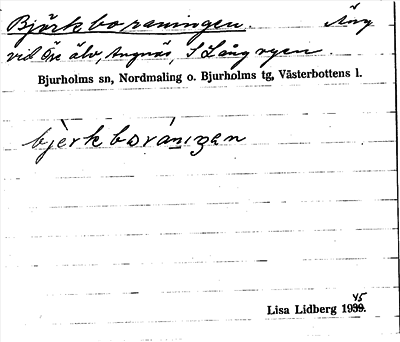 Björkboraningen. Äng
vid Öre älv, Angnäs, I Lång ryen.
Bjurholms sn, Nordmaling o. Bjurholms tg, Västerbottens l.
bjèrkboráningen
45
Lisa Lidberg 1939.